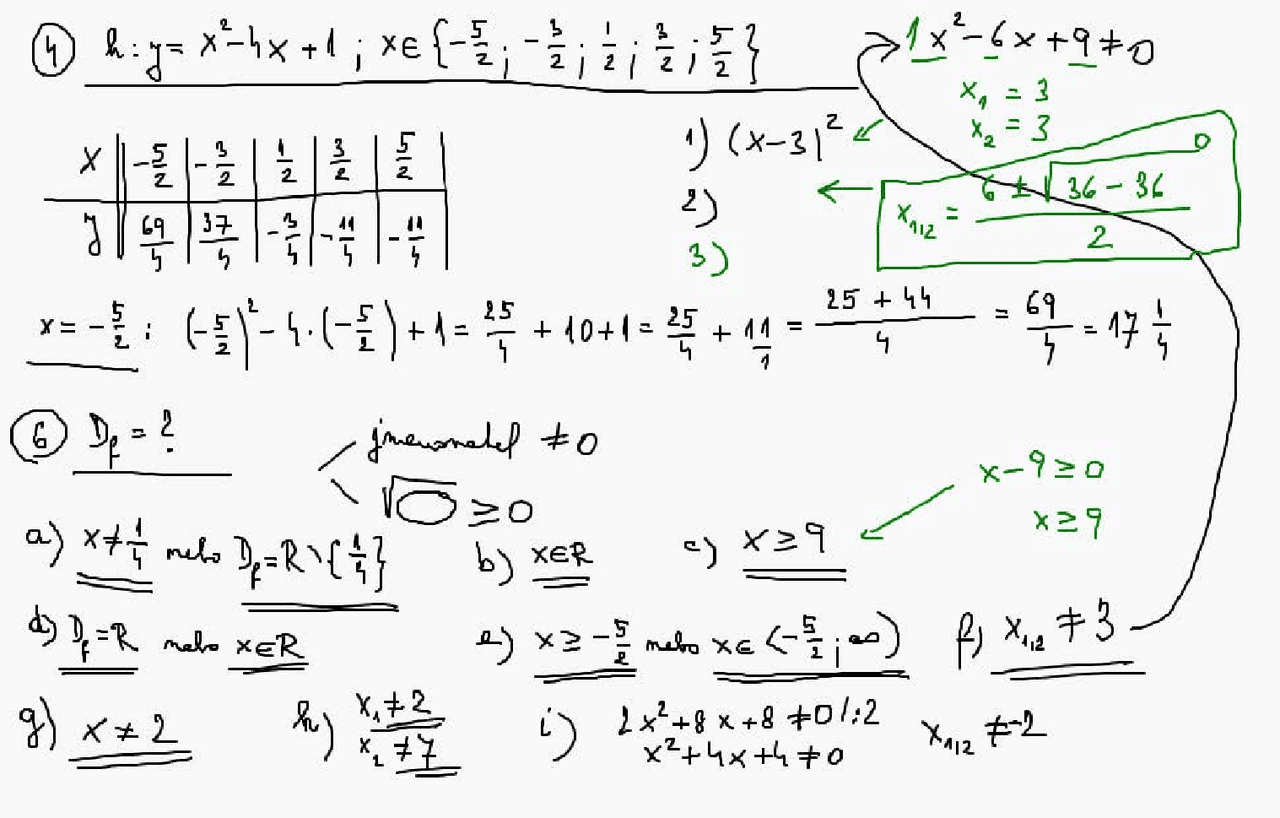 ④ h: y = x²-4x+1 ; x∈{-5/2 ; -3/2 ; 1/2 ; 3/2 ; 5/2}
1x²-6x+9≠0
x₁ = 3
x₂ = 3
x | -5/2 | -3/2 | 1/2 | 3/2 | 5/2
y | 69/4 | 37/4 | -3/4 | -11/4 | -11/4
1) (x-3)²
2)
3)
x₁,₂ = (6 ± √(36-36))/2
0
x = -5/2 : (-5/2)² - 4·(-5/2) + 1 = 25/4 + 10+1 = 25/4 + 11/1 = (25+44)/4 = 69/4 = 17 1/4
⑥ D_f = ?
jmenovatel ≠ 0
√◯ ≥ 0
x-9≥0
x≥9
a) x≠1/4 nebo D_f=R∖{1/4} b) x∈R c) x≥9
d) D_f=R nebo x∈R e) x≥-5/2 nebo x∈⟨-5/2 ; ∞) f) x₁,₂ ≠ 3
g) x≠2 h) x₁≠2
x₂≠7
i) 2x²+8x+8≠0 /:2
x²+4x+4≠0
x₁,₂ ≠-2